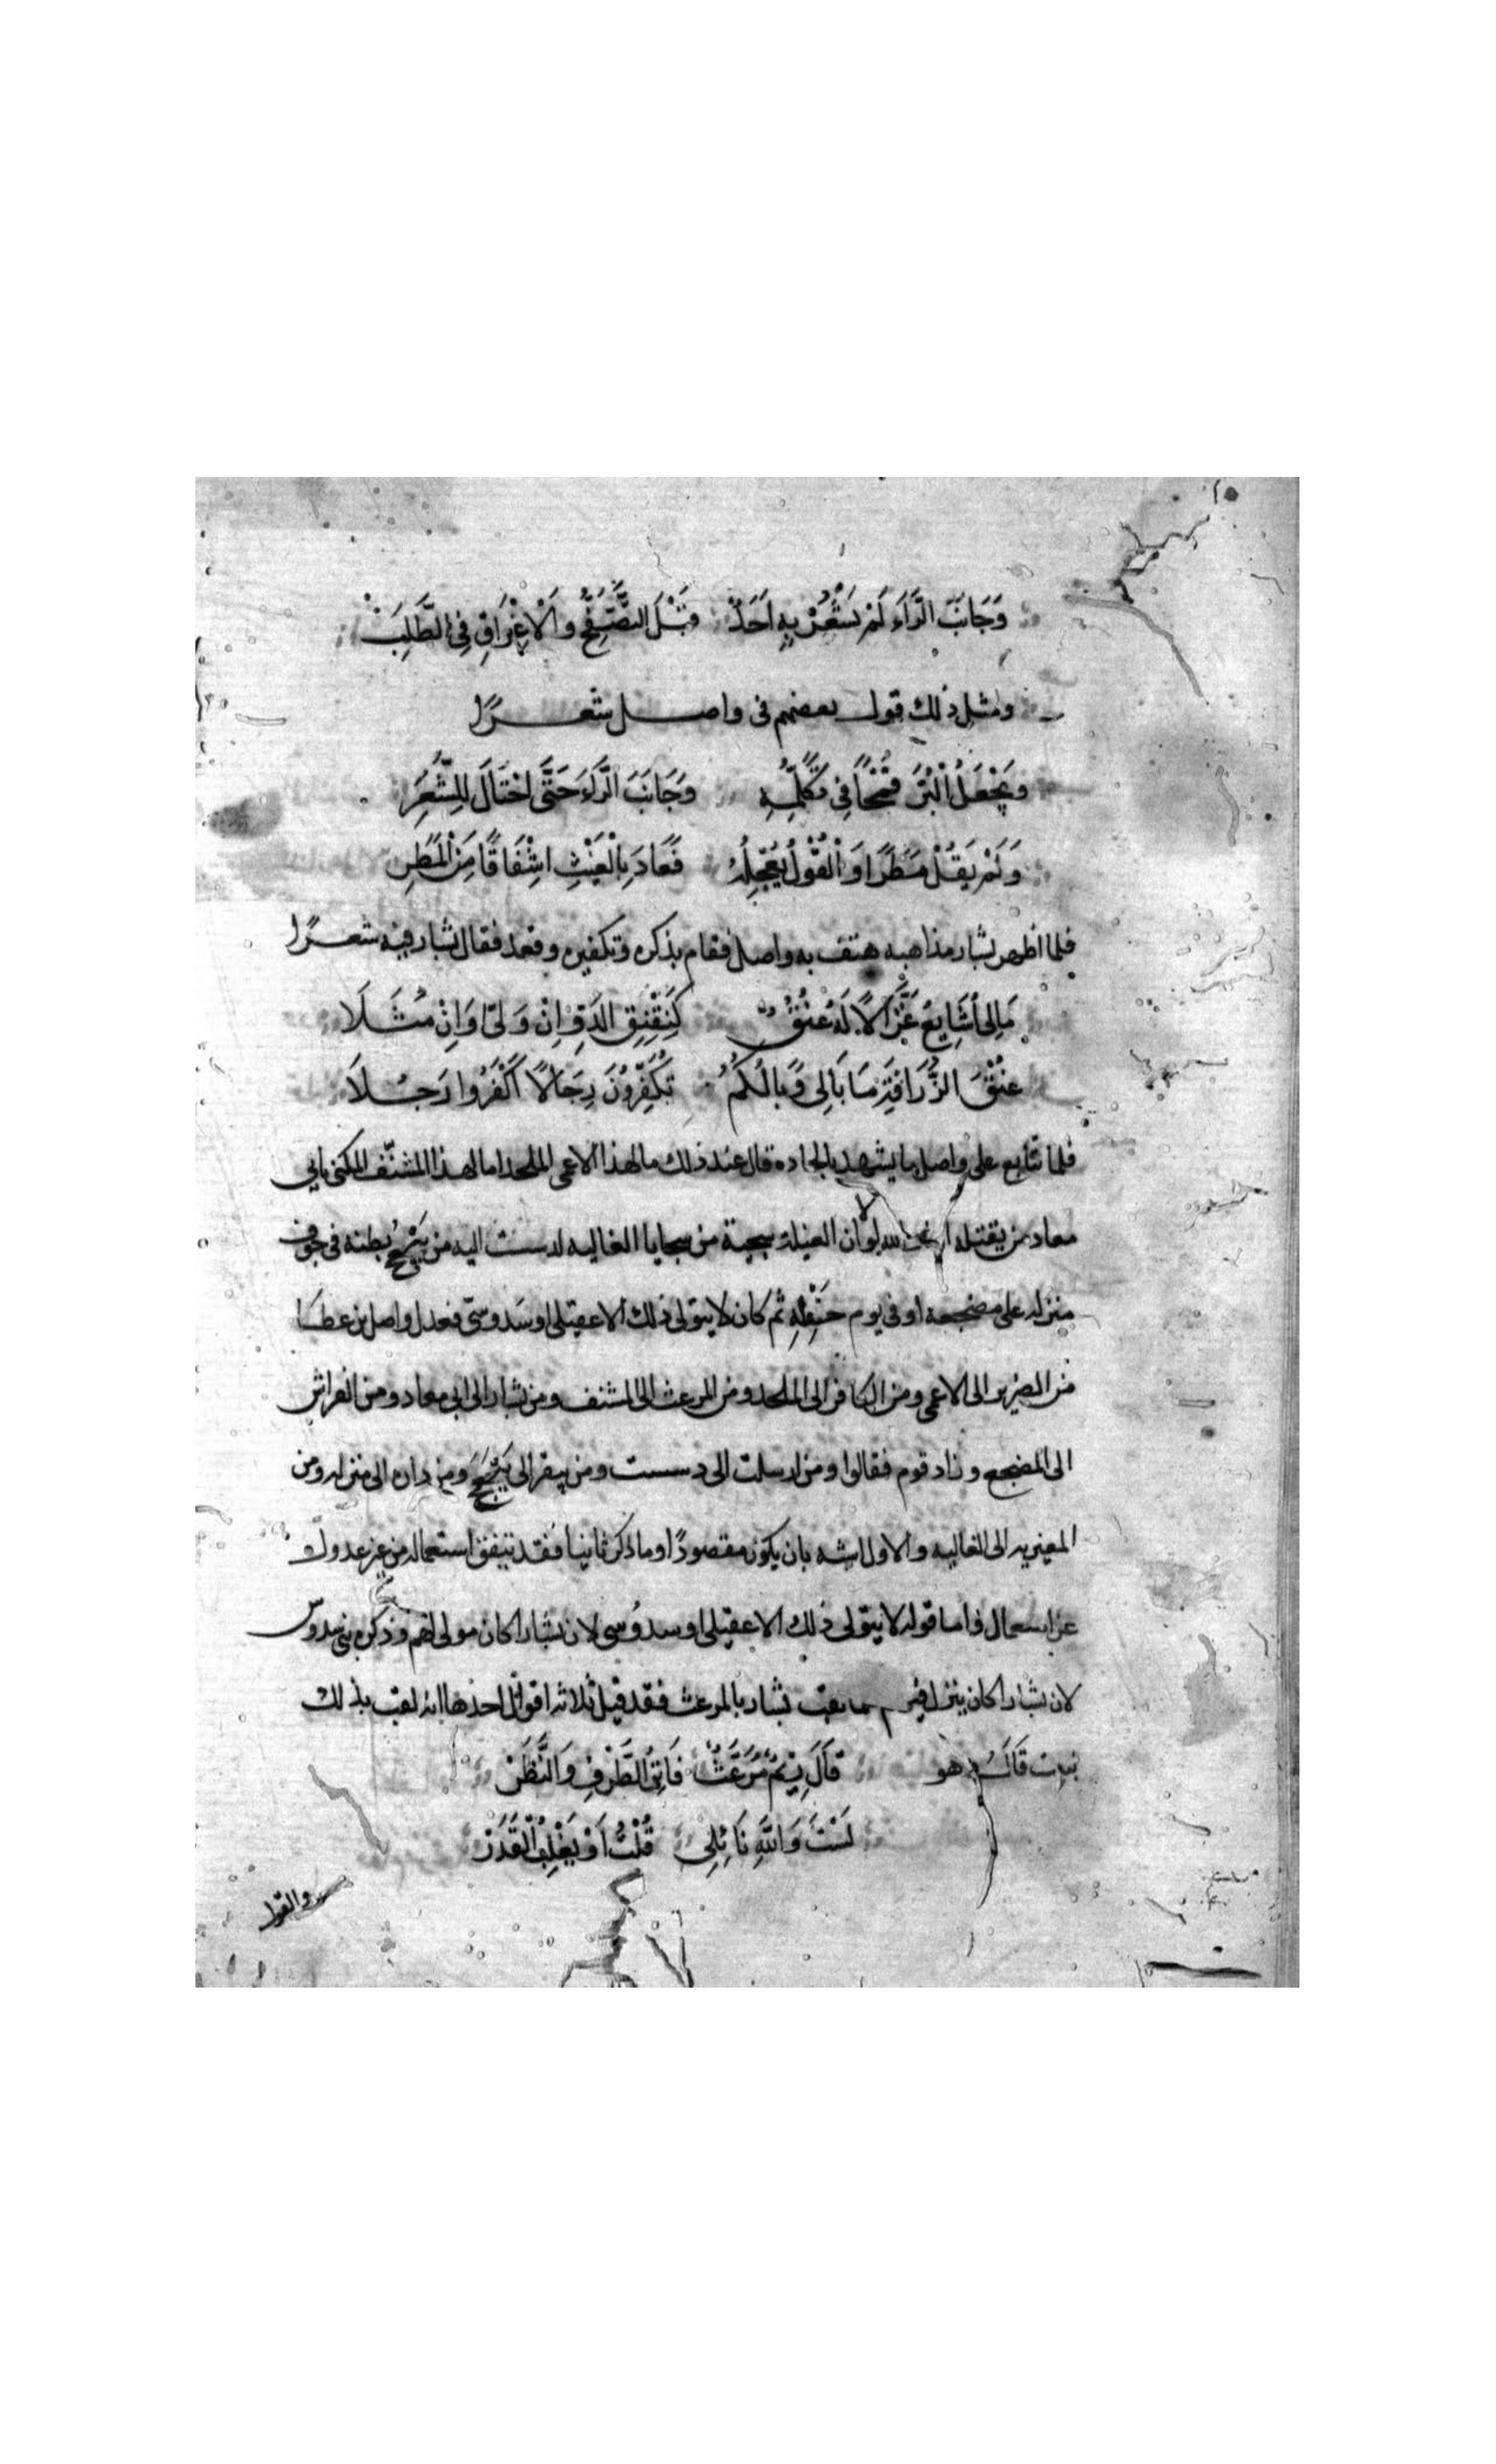 وَجَانَبَ الرَّاءَ لَمْ يَشْعُرْ بِهِ اَحَدٌ قَبْلَ التَّصَفُّحِ وَالْاِغْرَاقِ فِي الطَّلَبِ
ومثل ذلك قول بعضهم فى واصل شعرًا
وَيَجْعَلُ الْبُرَّ قَمْحًا فِي تَكَلُّمِهِ وَجَانَبَ الرَّاءَ حَتَّى احْتَالَ لِلشَّعَرِ
وَلَمْ يَقُلْ مَطَرًا وَالْقَوْلُ يُعْجِلُهُ فَعَادَ بِالْغَيْثِ اِشْفَاقًا مِنَ الْمَطَرِ
فلما اظهر بشار مذاهبه هتف به واصل فقام بذكره وتكفيره وقعد فقال بشار فيه شعرًا
مَالِى اُشَايِعُ غَزَّالًا لَهُ عُنُقٌ كَنِقْنِقِ الدَّوِّ اِنْ وَلَّى وَاِنْ مَثَلَا
عُنْقَ الزَّرَافَةِ مَا بَالِى وَبَالُكُمُ تُكَفِّرُونَ رِجَالًا اَكْفَرُوا رَجُلَا
فلما تتابع على واصل ما يشهد بالحاده قال عند ذلك ما لهذا الاعمى الملحد اما لهذا المشنّف المكنى بابى
معاد من يقتله اما والله لولا ان الغيلة سجية من سجايا الغاليه لدسست اليه من يَبْعَجُ بطنه فى جوف
منزله على مضجعه او فى يوم حَفْلِهِ ثم كان لا يتولى ذلك الا عقيلى او سَدوسىّ فعدل واصل بن عطا
من الضرير الى الاعمى ومن الكافر الى الملحد ومن المرعث الى المشنف ومن بشار الى ابى معاد ومن الفراش
الى المضجع وزاد قوم فقالوا ومن ارسلت الى دسست ومن يبقر الى يَبْعَجَ ومن داره الى منزله ومن
المغيريه الى الغاليه والاول اشبه بان يكون مقصودًا وما ذكر ثانيا فقد يتفق استعماله من غير عدول
عن استعمال فاما قوله لا يتولى ذلك الا عقيلى او سدُوسى لان بشارا كان مولى لهم وذكره بنى سدوس
لان بشارا كان ينزل فيهم تلقيب بشار بالمرعث فقد قيل ثلاثه اقوال احدها انه لقب بذلك
ببيت قَالَهُ وهو قَالَ رِيْمٌ مُرَعَّثٌ فَاتِنُ الطَّرْفِ وَالنَّظَرْ
لَسْتَ وَاللهِ نَائِلِى قُلْتُ اَوْ يَغْلِبُ الْقَدَرْ
والقول